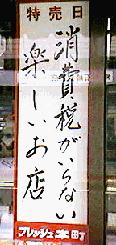 特売日
消費税がいらない
楽しいお店
フレッシュ本町